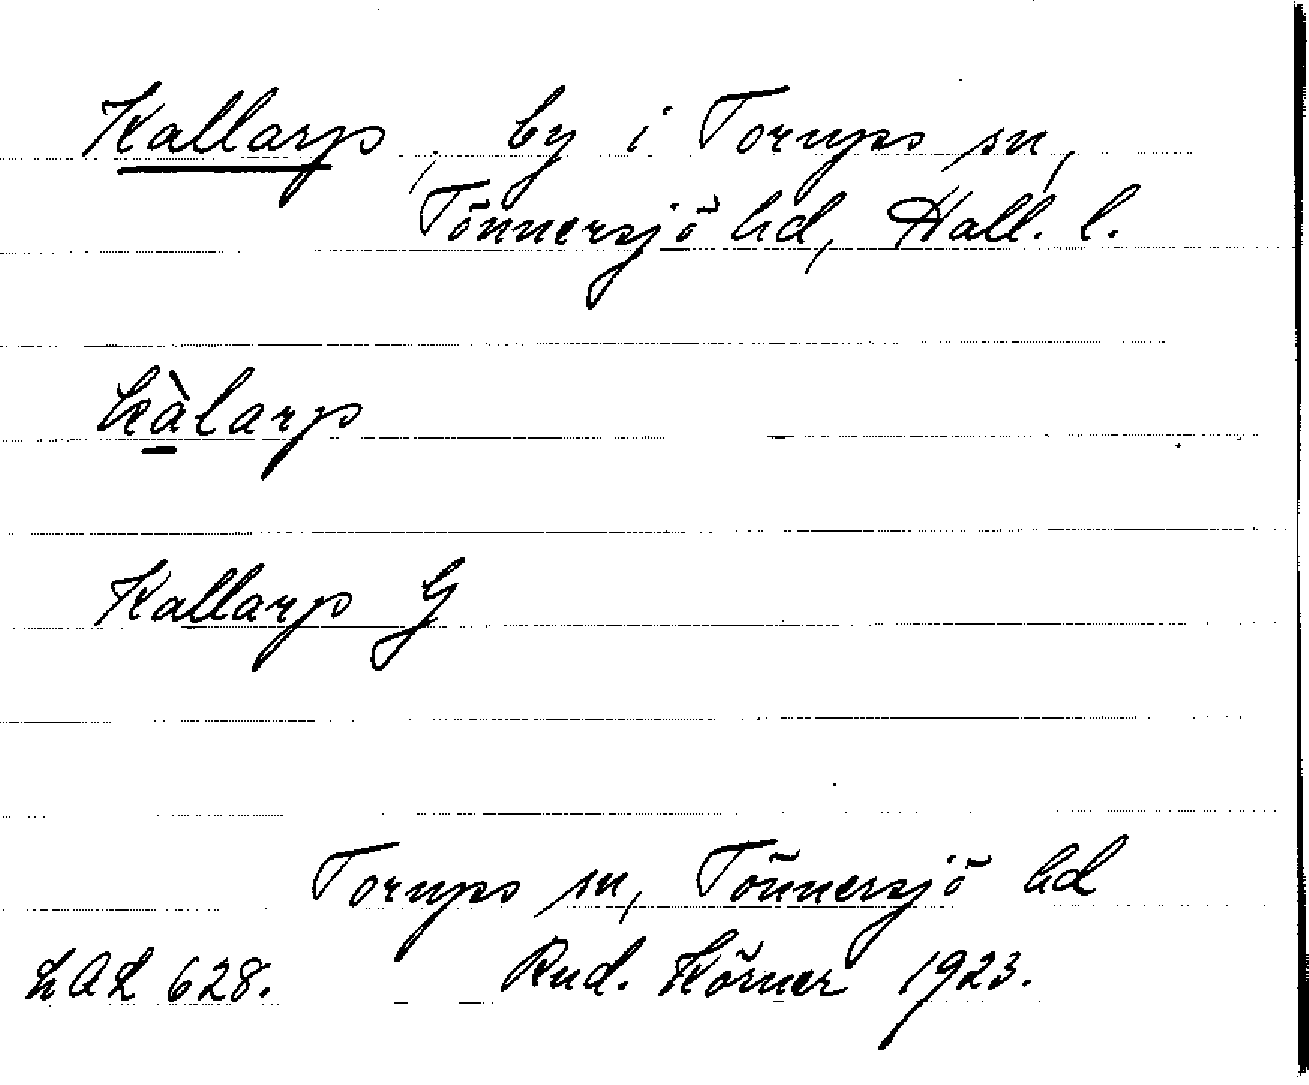 Kallarp, by i Torups sn,
Tönnersjö hd, Hall. l.
kàlarp
Kallarp G
Torups sn, Tönnersjö hd
LAL 628. Rud. Körner 1923.